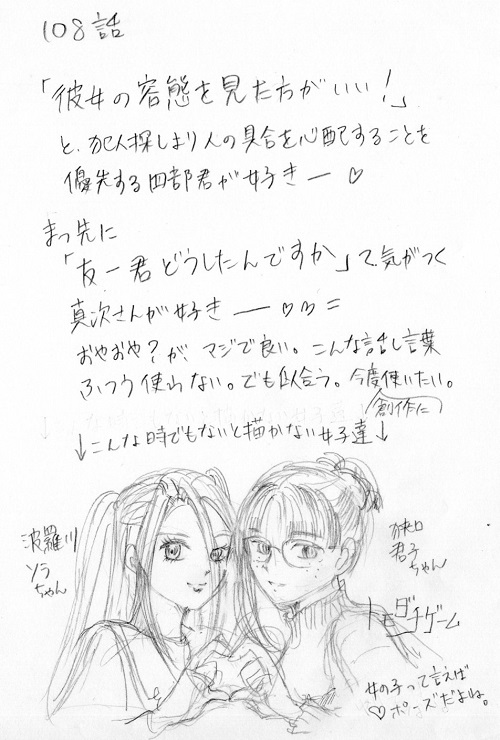 108話
「彼女の容態を見た方がいい!」
と、犯人探しより人の具合を心配することを
優先する四部君が好きー♡
まっ先に
「友一君どうしたんですか」て気がつく
真次さんが好きー♡
おやおや?が、マジで良い。こんな話し言葉
ふつう使わない。でも似合う。今度使いたい。
創作に
↓こんな時でもないと描かない女子達↓
波羅川
ソラ
ちゃん
狭口
君子
ちゃん
トモダチゲーム
女の子って言えば
♡ポーズだよね。